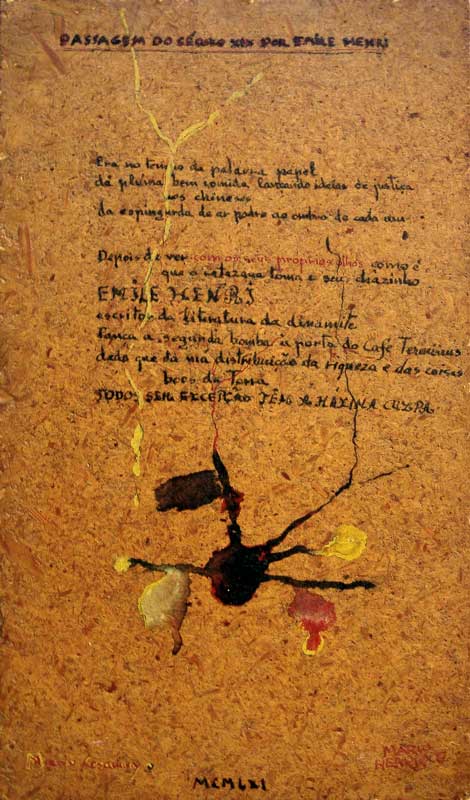 PASSAGEM DO SÉCULO XIX POR EMILE HENRI
Era no tempo da palavra papel
da pluma bem comida lançando ideias de justiça
aos chineses
da espingarda de ar podre ao ombro de cada um
Depois de ver com os seus próprios olhos como é
que o catazana toma o seu chazinho
EMILE HENRI
escritor da literatura da dinamite
lança a segunda bomba à porta do Café Terminus
dado que da má distribuição da riqueza e das coisas
boas da Terra
TODOS SEM EXCEPÇÃO TÊM A MÁXIMA CULPA
Mário
MÁRIO
HENRIQUE
MCMLXI